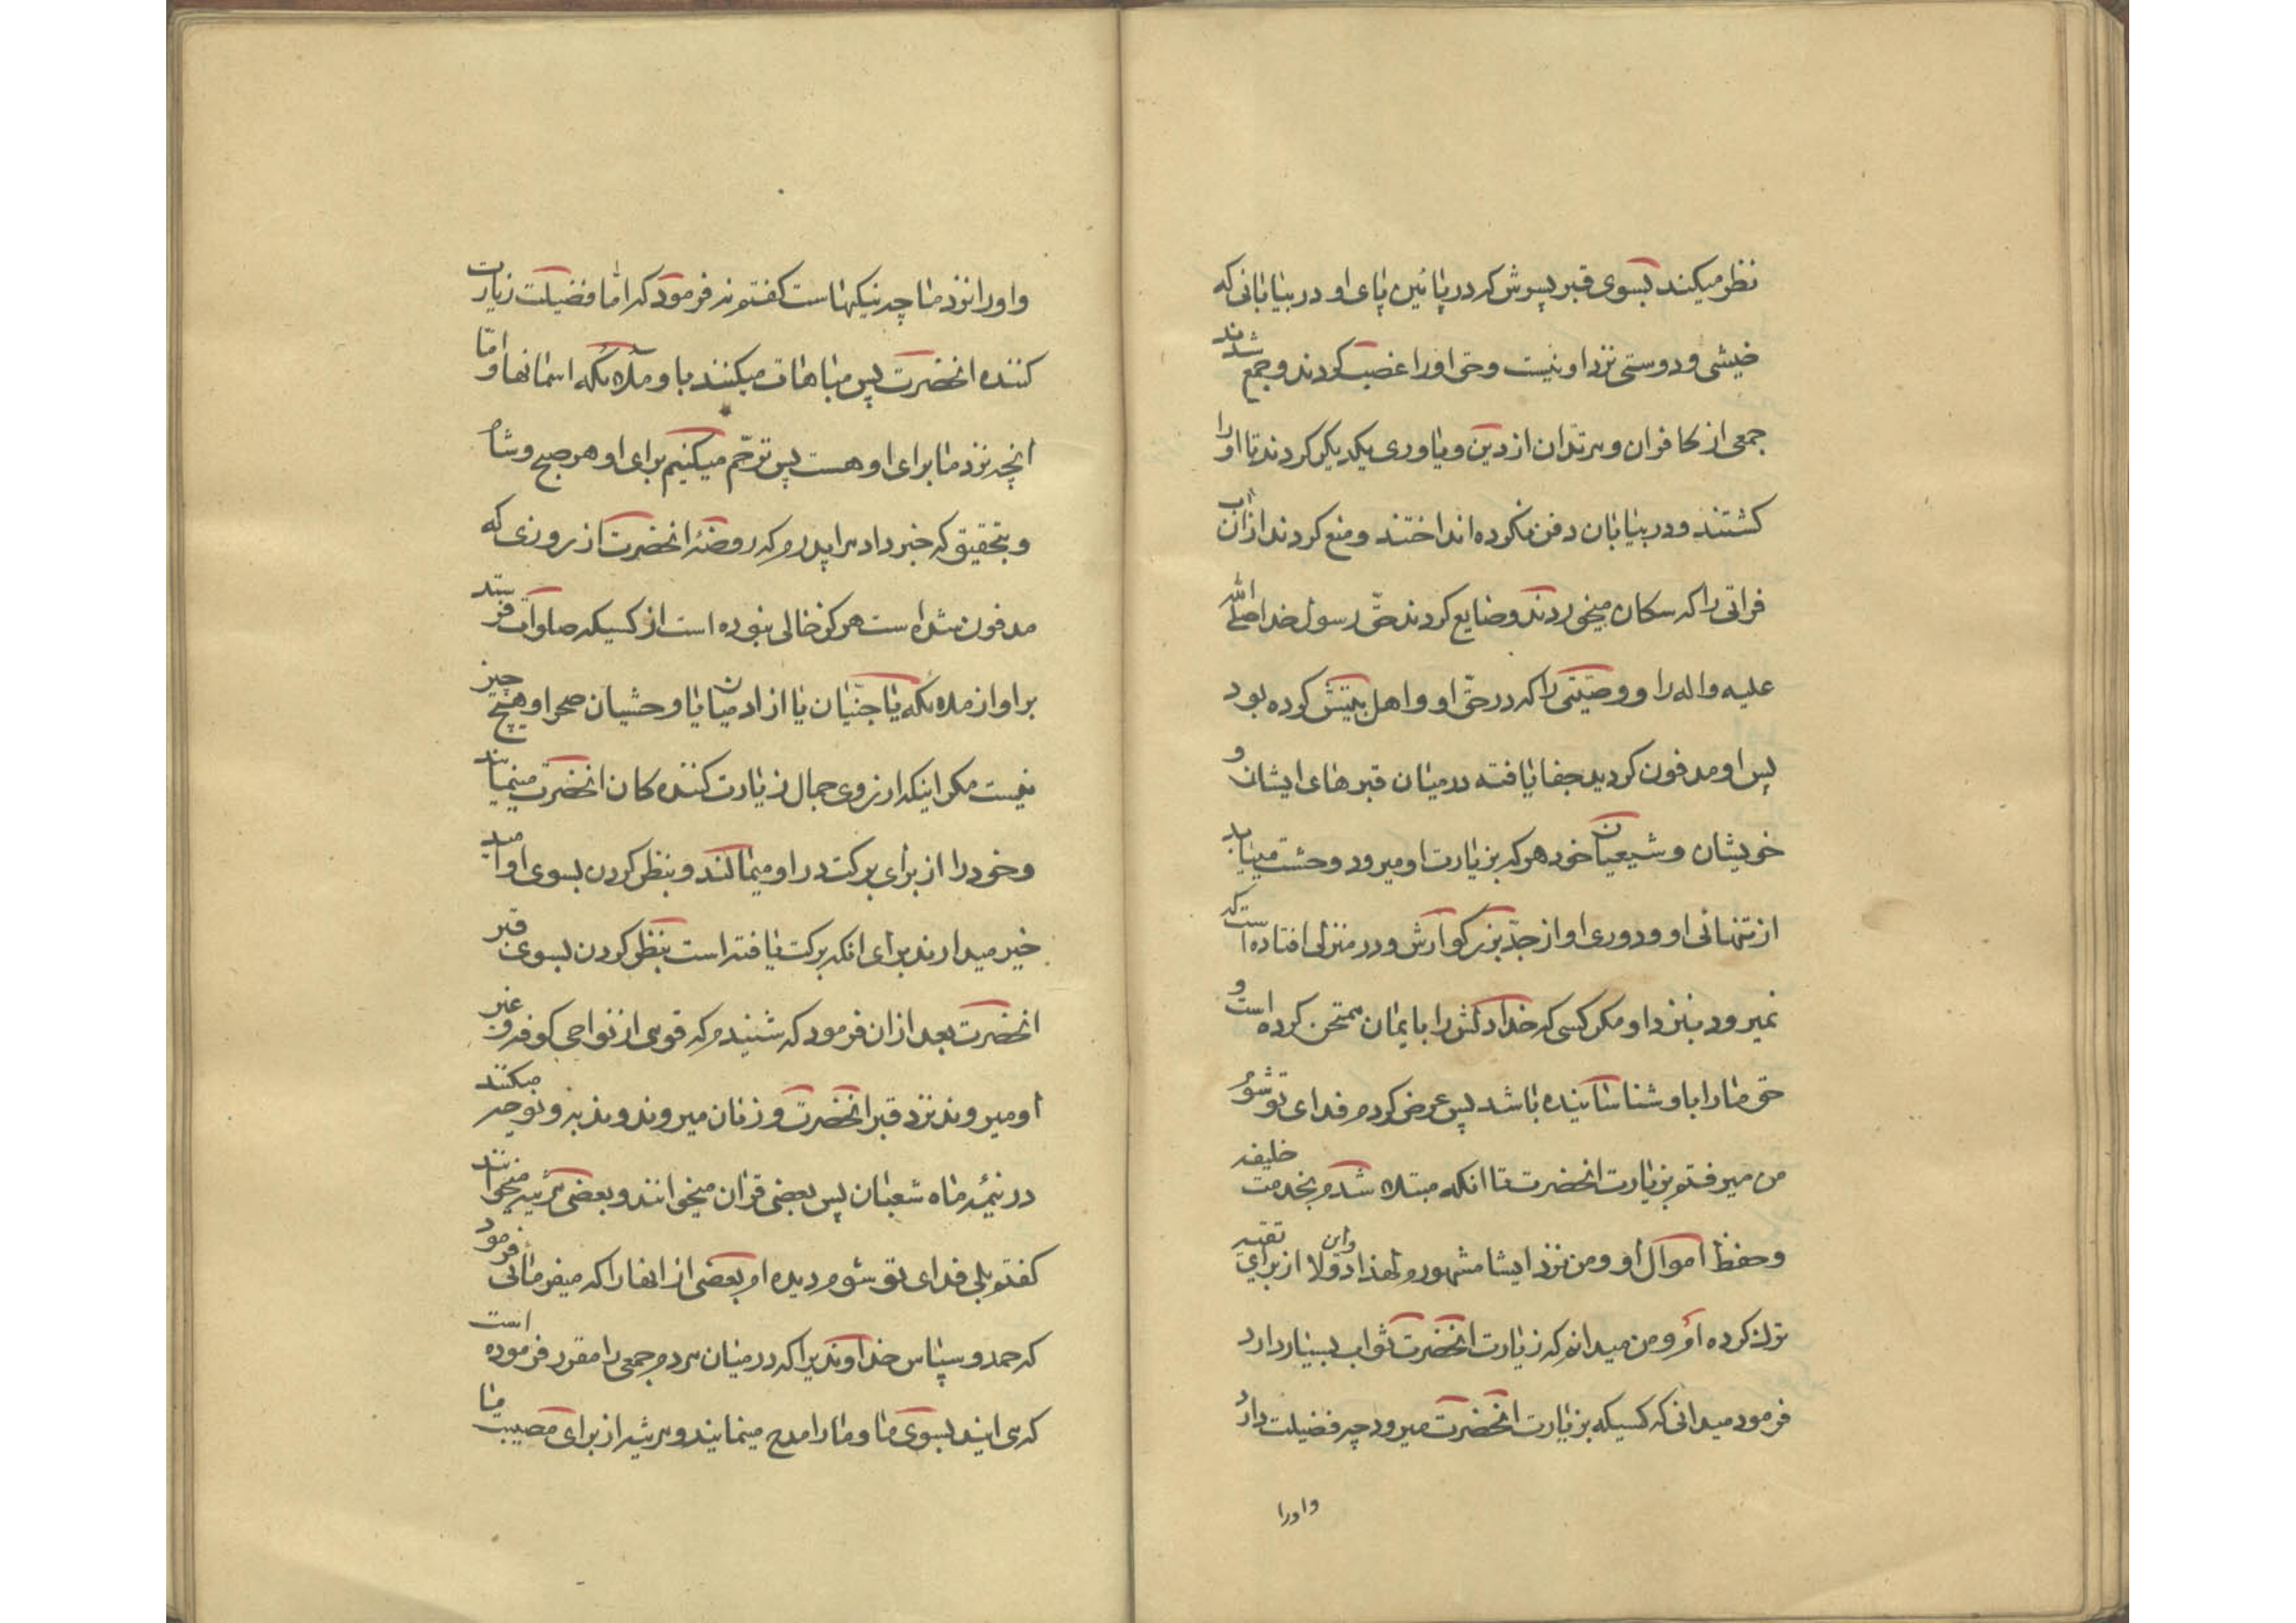 نظر میکند بسوی قبر پسرش که در پائین پای او در بیابانی که
خیشی و دوستی نزد او نیست و حق او را غصب کردند و جمع شدند
جمعی از کافران و مرتدان از دین و یاوری یکدیکر کردند تا او را
کشتند و در بیابان دفن نکرده انداختند و منع کردند از آن آب
فراتی را که سکان میخوردند و ضایع کردند حقّ رسول خدا صلی الله
علیه و اله را و وصیّتی را که در حقّ او و اهل بیتش کرده بود
پس او مدفون کردید جفا یافته در میان قبرهای ایشان و
خویشان و شیعیان خود هر که بزیارت او میرود وحشت مییابد
از تنهائی او و دوری او از جدّ بزرکوارش و در منزلی افتاده است که
نمیرود بنزد او مکر کسی که خدا دلش را بایمان ممتحن کرده است و
حق ما را باو شناسانیده باشد پس عرض کردم فدای تو شوم
من میرفتم بزیارت انحضرت تا انکه مبتلا شدم بخدمت خلیفه
و حفظ اموال او و من نزد ایشا مشهورم لهذا و این از برای تقیه
ترک کرده ام و من میدانم که زیارت انحضرت ثواب بسیار دارد
فرمود میدانی که کسیکه بزیارت انحضرت میرود چه فضیلت دارد
و او را
و او را نزد ما چه نیکیهاست کفتم نه فرمود که امّا فضیلت زیارت
کننده انحضرت پس مباهات میکنند باو ملائکه اسمانها و امّا
انچه نزد ما برای او هست پس ترحّم میکنیم برای او هر صبح و شام
و بتحقیق که خبر داد مرا پدرم که روضهٔ انحضرت از روزی که
مدفون شده است هرکز خالی نبوده است از کسیکه صلوات فرستد
بر او از ملائکه یا جنّیان یا از ادمیان یا وحشیان صحرا و هیچ چیز
نیست مکر اینکه ارزوی حال زیارت کننده کان انحضرت مینمایند
و خود را از برای برکت در او میمالند و بنظر کردن بسوی او امید
خیر میدارند برای انکه برکت یافته است بنظر کردن بسوی قبر
انحضرت بعد از ان فرمود که شنیدم که قومی از نواحی کوفه و غیر
او میروند نزد قبر انحضرت و زنان میروند و ندبه و نوحه میکنند
در نیمهٔ ماه شعبان پس بعضی قران میخوانند و بعضی مرثیه میخوانند
کفتم بلی فدای تو شوم دیده ام بعضی از انها را که میفرمائی فرمود
که حمد و سپاس خداوندیرا که در میان مردم جمعی را مقرر فرموده است
که می ایند بسوی ما و ما را مدح مینمایند و مرثیه از برای مصیبت ما